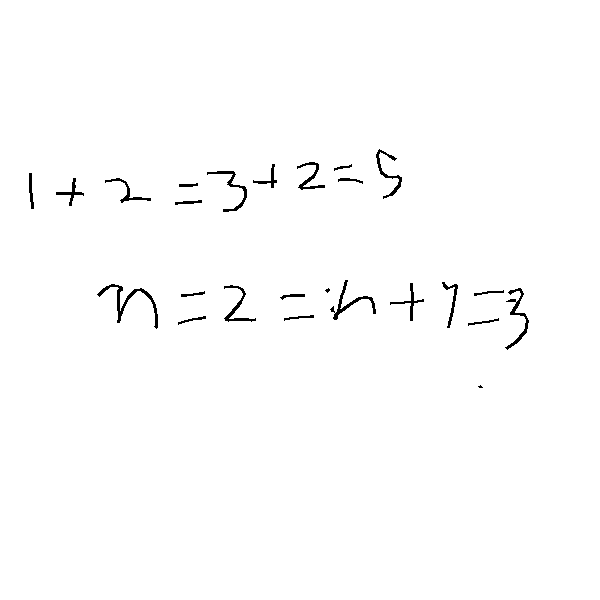 1 + 2 = 3 + 2 = 5
n = 2 = n + 1 = 3